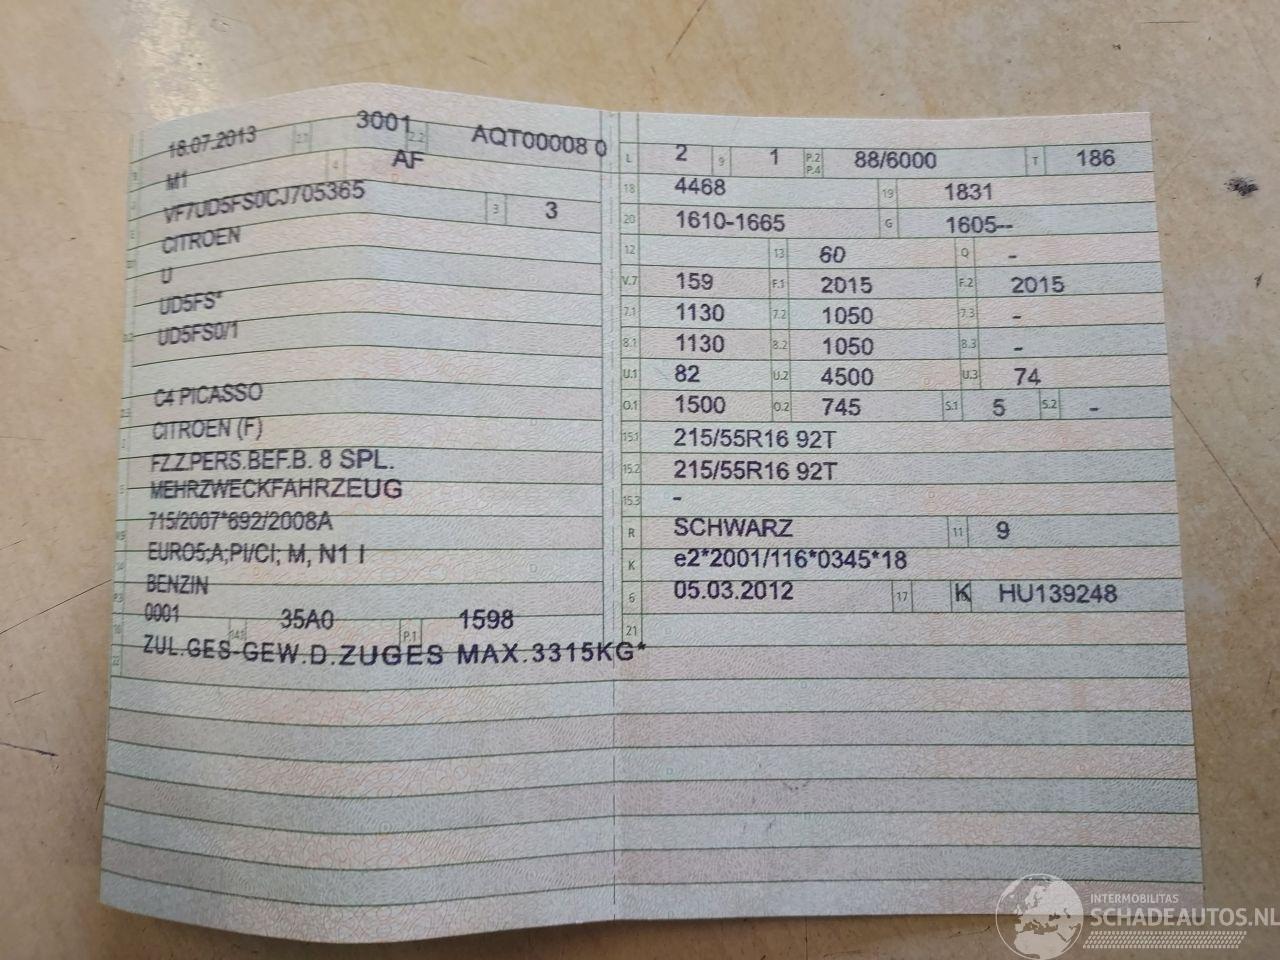 18.07.2013 2.1 3001 2.2 AQT00008 0
M1 4 AF
VF7UD5FS0CJ705365 3 3
CITROEN
U
UD5FS*
UD5FS0/1
C4 PICASSO
CITROEN (F)
FZ.Z.PERS.BEF.B. 8 SPL.
MEHRZWECKFAHRZEUG
715/2007*692/2008A
EURO5;A;PI/CI; M, N1 I
BENZIN
0001 14.1 35A0 P.1 1598
22 ZUL.GES-GEW.D.ZUGES MAX.3315KG*
L 2 9 1 P.2 P.4 88/6000 T 186
18 4468 19 1831
20 1610-1665 G 1605--
12 13 60 Q -
V.7 159 F.1 2015 F.2 2015
7.1 1130 7.2 1050 7.3 -
8.1 1130 8.2 1050 8.3 -
U.1 82 U.2 4500 U.3 74
O.1 1500 O.2 745 S.1 5 S.2 -
15.1 215/55R16 92T
15.2 215/55R16 92T
15.3 -
R SCHWARZ 11 9
K e2*2001/116*0345*18
6 05.03.2012 17 K HU139248
21
INTERMOBILITAS
SCHADEAUTOS.NL